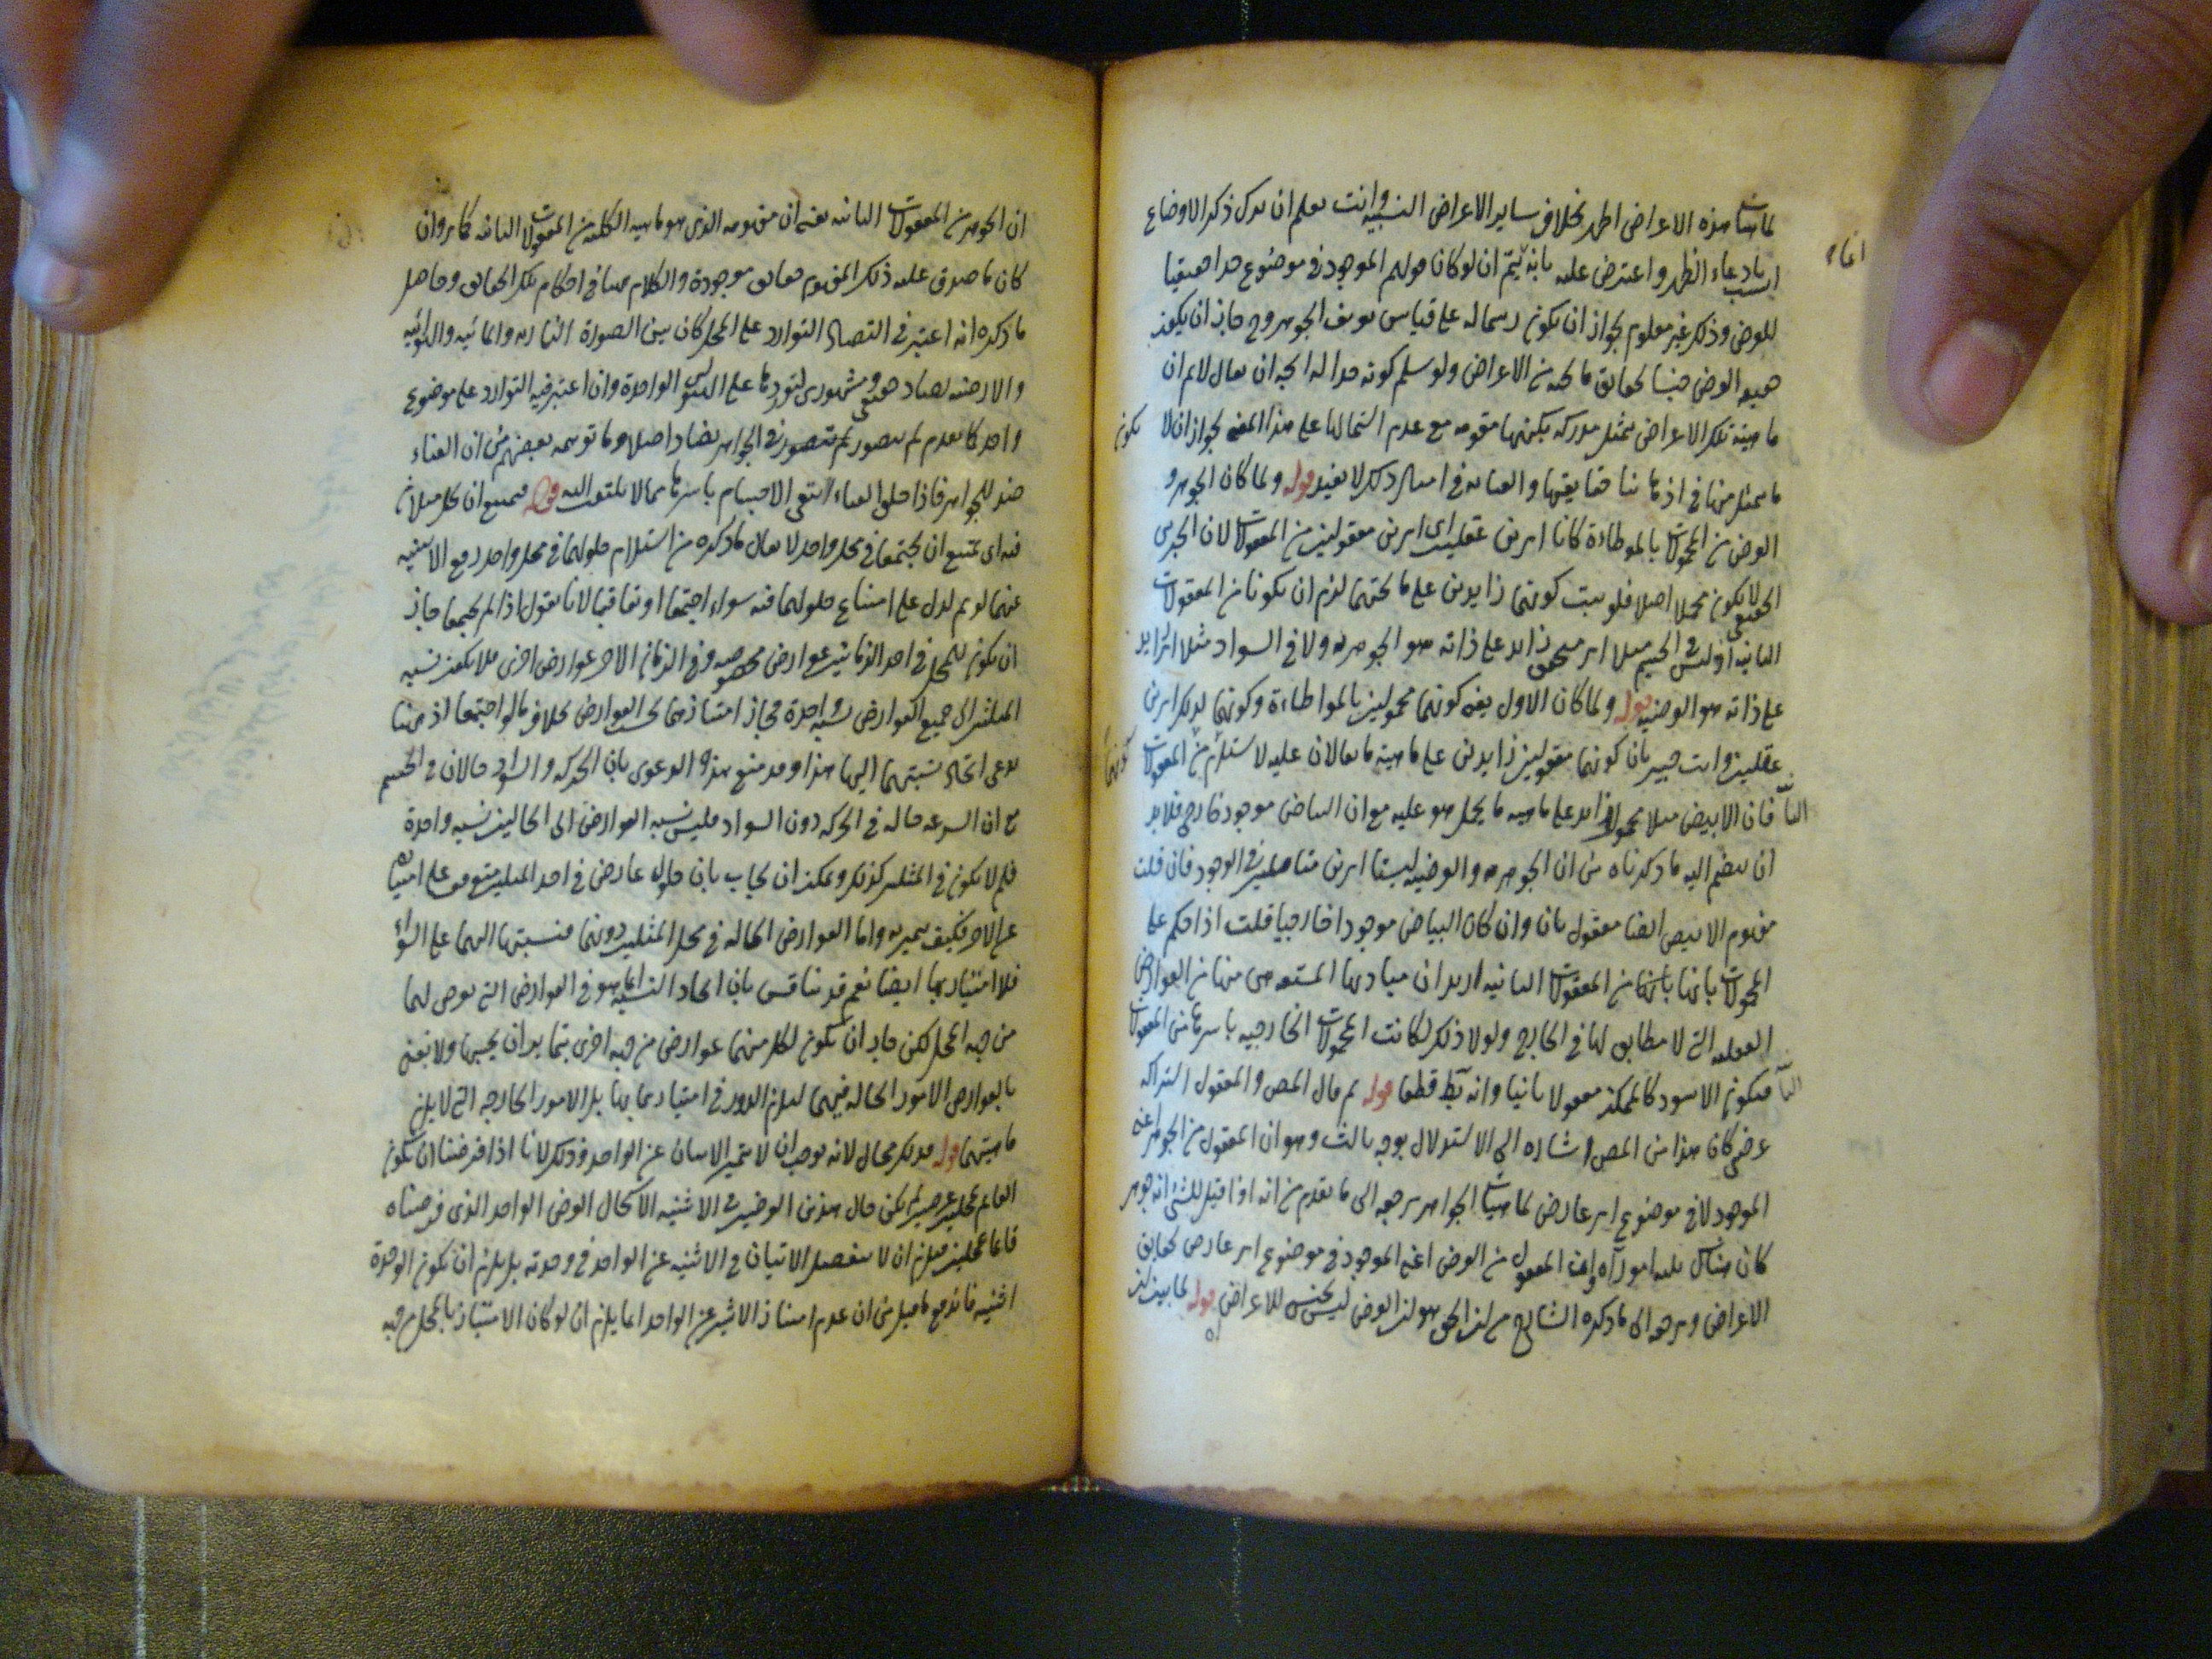 لماهيات هذه الاعراض اظهر بخلاف ساير الاعراض النسبية وانت تعلم ان ترك ذكر الاوضاع
انسب بادعاء الظهور واعترض عليه بانه يتم ان لو كان قولهم الموجود في موضوع حدا حقيقيا
للعرض وذلك غير معلوم لجواز ان يكون رسما له على قياس تعريف الجوهر وح جاز ان يكون
العرض جنسا لحقايق ما تحته من الاعراض ولو سلم كونه حدا له اتجه ان يقال لا نم ان
ماهية تلك الاعراض مدركة بكنهها مع عدم اشتمالها على هذا المعنى لجواز ان لا يكون
ما من في اذهاننا حقايقها والعناية في امثال ذلك لا يفيد قوله ولما كان الجوهر و
العرض من المحمولات بالمواطاة كانا امرين عقليين اى امرين معقولين من المعقولات لان الجزئى
الحقيقى لا يكون محمولا اصلا فلو ثبت كونهما زايدين على ما تحتهما لزم ان يكونا من المعقولات
الثانية اذ ليس في الجسم مثلا امر متحقق زايد على ذاته هو الجوهرية ولا في السواد مثلا امر زايد
على ذاته هو العرضية قوله ولما كان الاول يعنى كونهما محمولين بالمواطاة وكونهما لذلك امرين
عقليين وانت خبير بان كونهما مقولين زايدين على ماهية ما يقالان عليه لا يستلزم كونهما من المعقولات
الثانية فان الابيض مثلا محمول زايد على ماهية ما يحمل هو عليه مع ان البياض موجود خارجى فلا بد
ان ينضم اليه ما ذكرناه من ان الجوهرية والعرضية ليستا امرين متاصلين في الوجود فان قلت
مفهوم الابيض ايضا معقول ثان وان كان البياض موجودا خارجيا قلت اذا حكم على
المحمولات بانها من المعقولات الثانية اريد ان مباديها منها من العوارض
العقلية التى لا مطابق لها في الخارج ولولا ذلك لكانت المحمولات الخارجية باسرها من المعقولات
الثانية فيكون الاسود كالممكن معقولا ثانيا وانه بط قطعا قوله ثم قال المص والمعقول اشتراكه
عرضى كان هذا من المص اشارة الى الاستدلال بوجه ثالث وهو ان المعقول من الجوهر اعنى
الموجود لا في موضوع امر عارض لماهيات الجواهر يرجع الى ما تقدم من انه اذا قيل للشئ انه جوهر
كان هناك ثلثة امور اه وان المعقول من العرض اعنى الموجود في موضوع امر عارض لحقايق
الاعراض ويرجع الى ما ذكره الشارح من ان الحق هو ان العرض ليس بجنس للاعراض قوله لما بين ان
ان الجوهر من المعقولات الثانية يعنى ان مفهومه الذى هو ماهيته الكلية من المعقولات الثانية كما مر وان
كان ما صدق عليه ذلك المفهوم حقايق موجودة والكلام هنا في احكام تلك الحقايق وحاصل
ما ذكره انه اعتبر في التضاد التوارد على المحل كان بين الصورة النارية والمائية والهوائية
والارضية تضاد حقيقى ومشهورى لتواردها على الهيولى الواحدة وان اعتبر فيه التوارد على موضوع
واحد كما تقدم لم يتصور في الجواهر تضاد اصلا وما توهمه بعضهم من ان الفناء
ضد للجواهر فاذا خلق الفناء انتفى الاجسام باسرها مما لا يلتفت اليه قوله فيمتنع ان يحل مثلان
فيه اى يمتنع ان يجتمعا في محل واحد لا يقال ما ذكره من استلزام حلولهما في محل واحد رفع الاثنينية
عنهما لو تم لدل على امتناع حلولهما فيه سواء اجتمعا او تعاقبا لانا نقول اذا لم يجتمعا جاز
ان يكون للمحل في احد الزمانين عوارض مخصوصة وفي الزمان الاخر عوارض اخرى فلا يكون نسبة
المثلين الى جميع العوارض نسبة واحدة فجاز امتيازهما بحسب العوارض بخلاف ما لو اجتمعا اذ هنا
يدعى اتحاد نسبتهما اليها هذا وقد منع هذه الدعوى بان الحركة والسواد حالان في الجسم
مع ان السرعة حالة في الحركة دون السواد فليس نسبة العوارض الى الحالين نسبة واحدة
فلم لا يكون في المثلين كذلك ويمكن ان يجاب بان حلول عارض في احد المثلين متوقف على امتيازه
عن الاخر فكيف يميزه واما العوارض الحالة في محل المثلين دونهما فنسبتها اليهما على السواء
فلا امتياز بها ايضا نعم قد يناقش بان اتحاد النسبة انما هو في العوارض التى تعرض لهما
من جهة المحل لكن جاز ان يكون لكل منهما عوارض من جهة اخرى يتمايزان بحسبها ولا يعنى
بالعوارض الامور الحالة فيهما ليلزم الدور في امتيازهما بها بل الامور الخارجة التى لا يلزم
ماهيتهما قوله فذلك محال لانه يوجب ان لا يتميز الاثنان عن الواحد وذلك لانا اذا فرضنا ان يكون
القايم بمحلين عرضين لم يكن حال هذين العرضين في الاثنينية الا كحال العرض الواحد الذى فرضناه
قائما بمحلين فيلزم ان لا ينفصل الاثنان في الاثنينية عن الواحد في وحدته بل يلزم ان يكون الوحدة
اثنينية فاندفع ما قيل من ان عدم امتياز الاثنين عن الواحد انما يلزم ان لو كان الامتياز بالمحل من جهة